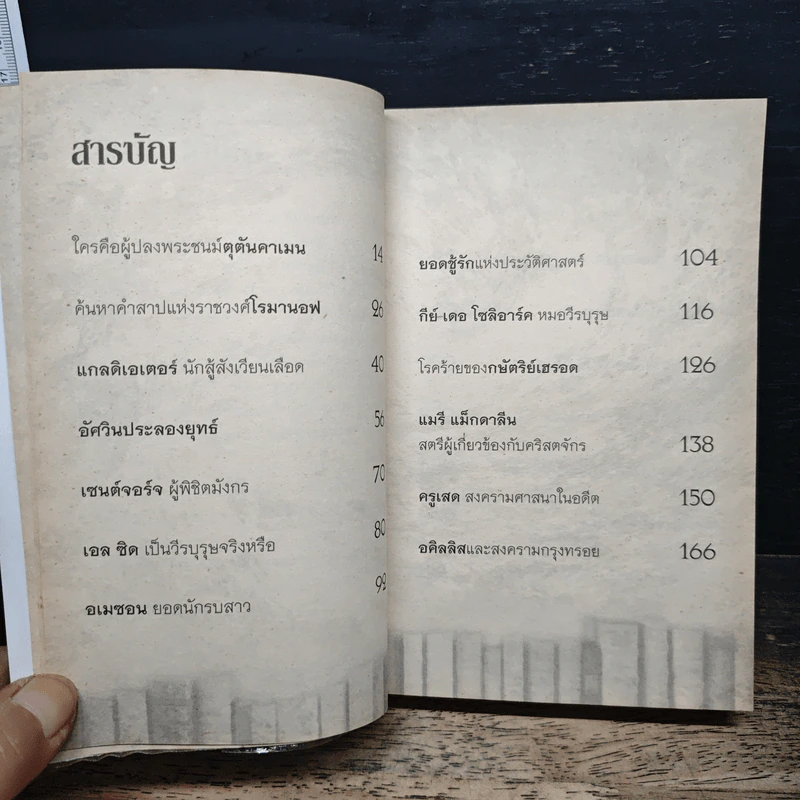 สารบัญ
ใครคือผู้ปลงพระชนม์ตุตันคาเมน 14
ค้นหาคำสาปแห่งราชวงศ์โรมานอฟ 26
แกลดิเอเตอร์ นักสู้สังเวียนเลือด 40
อัศวินประลองยุทธ์ 56
เซนต์จอร์จ ผู้พิชิตมังกร 70
เอล ซิด เป็นวีรบุรุษจริงหรือ 80
อเมซอน ยอดนักรบสาว 92
ยอดชู้รักแห่งประวัติศาสตร์ 104
กีย์-เดอ โซลิอาร์ค หมอวีรบุรุษ 116
โรคร้ายของกษัตริย์เฮรอด 126
แมรี แม็กดาลีน
สตรีผู้เกี่ยวข้องกับคริสตจักร 138
ครูเสด สงครามศาสนาในอดีต 150
อคิลลิสและสงครามกรุงทรอย 166
17